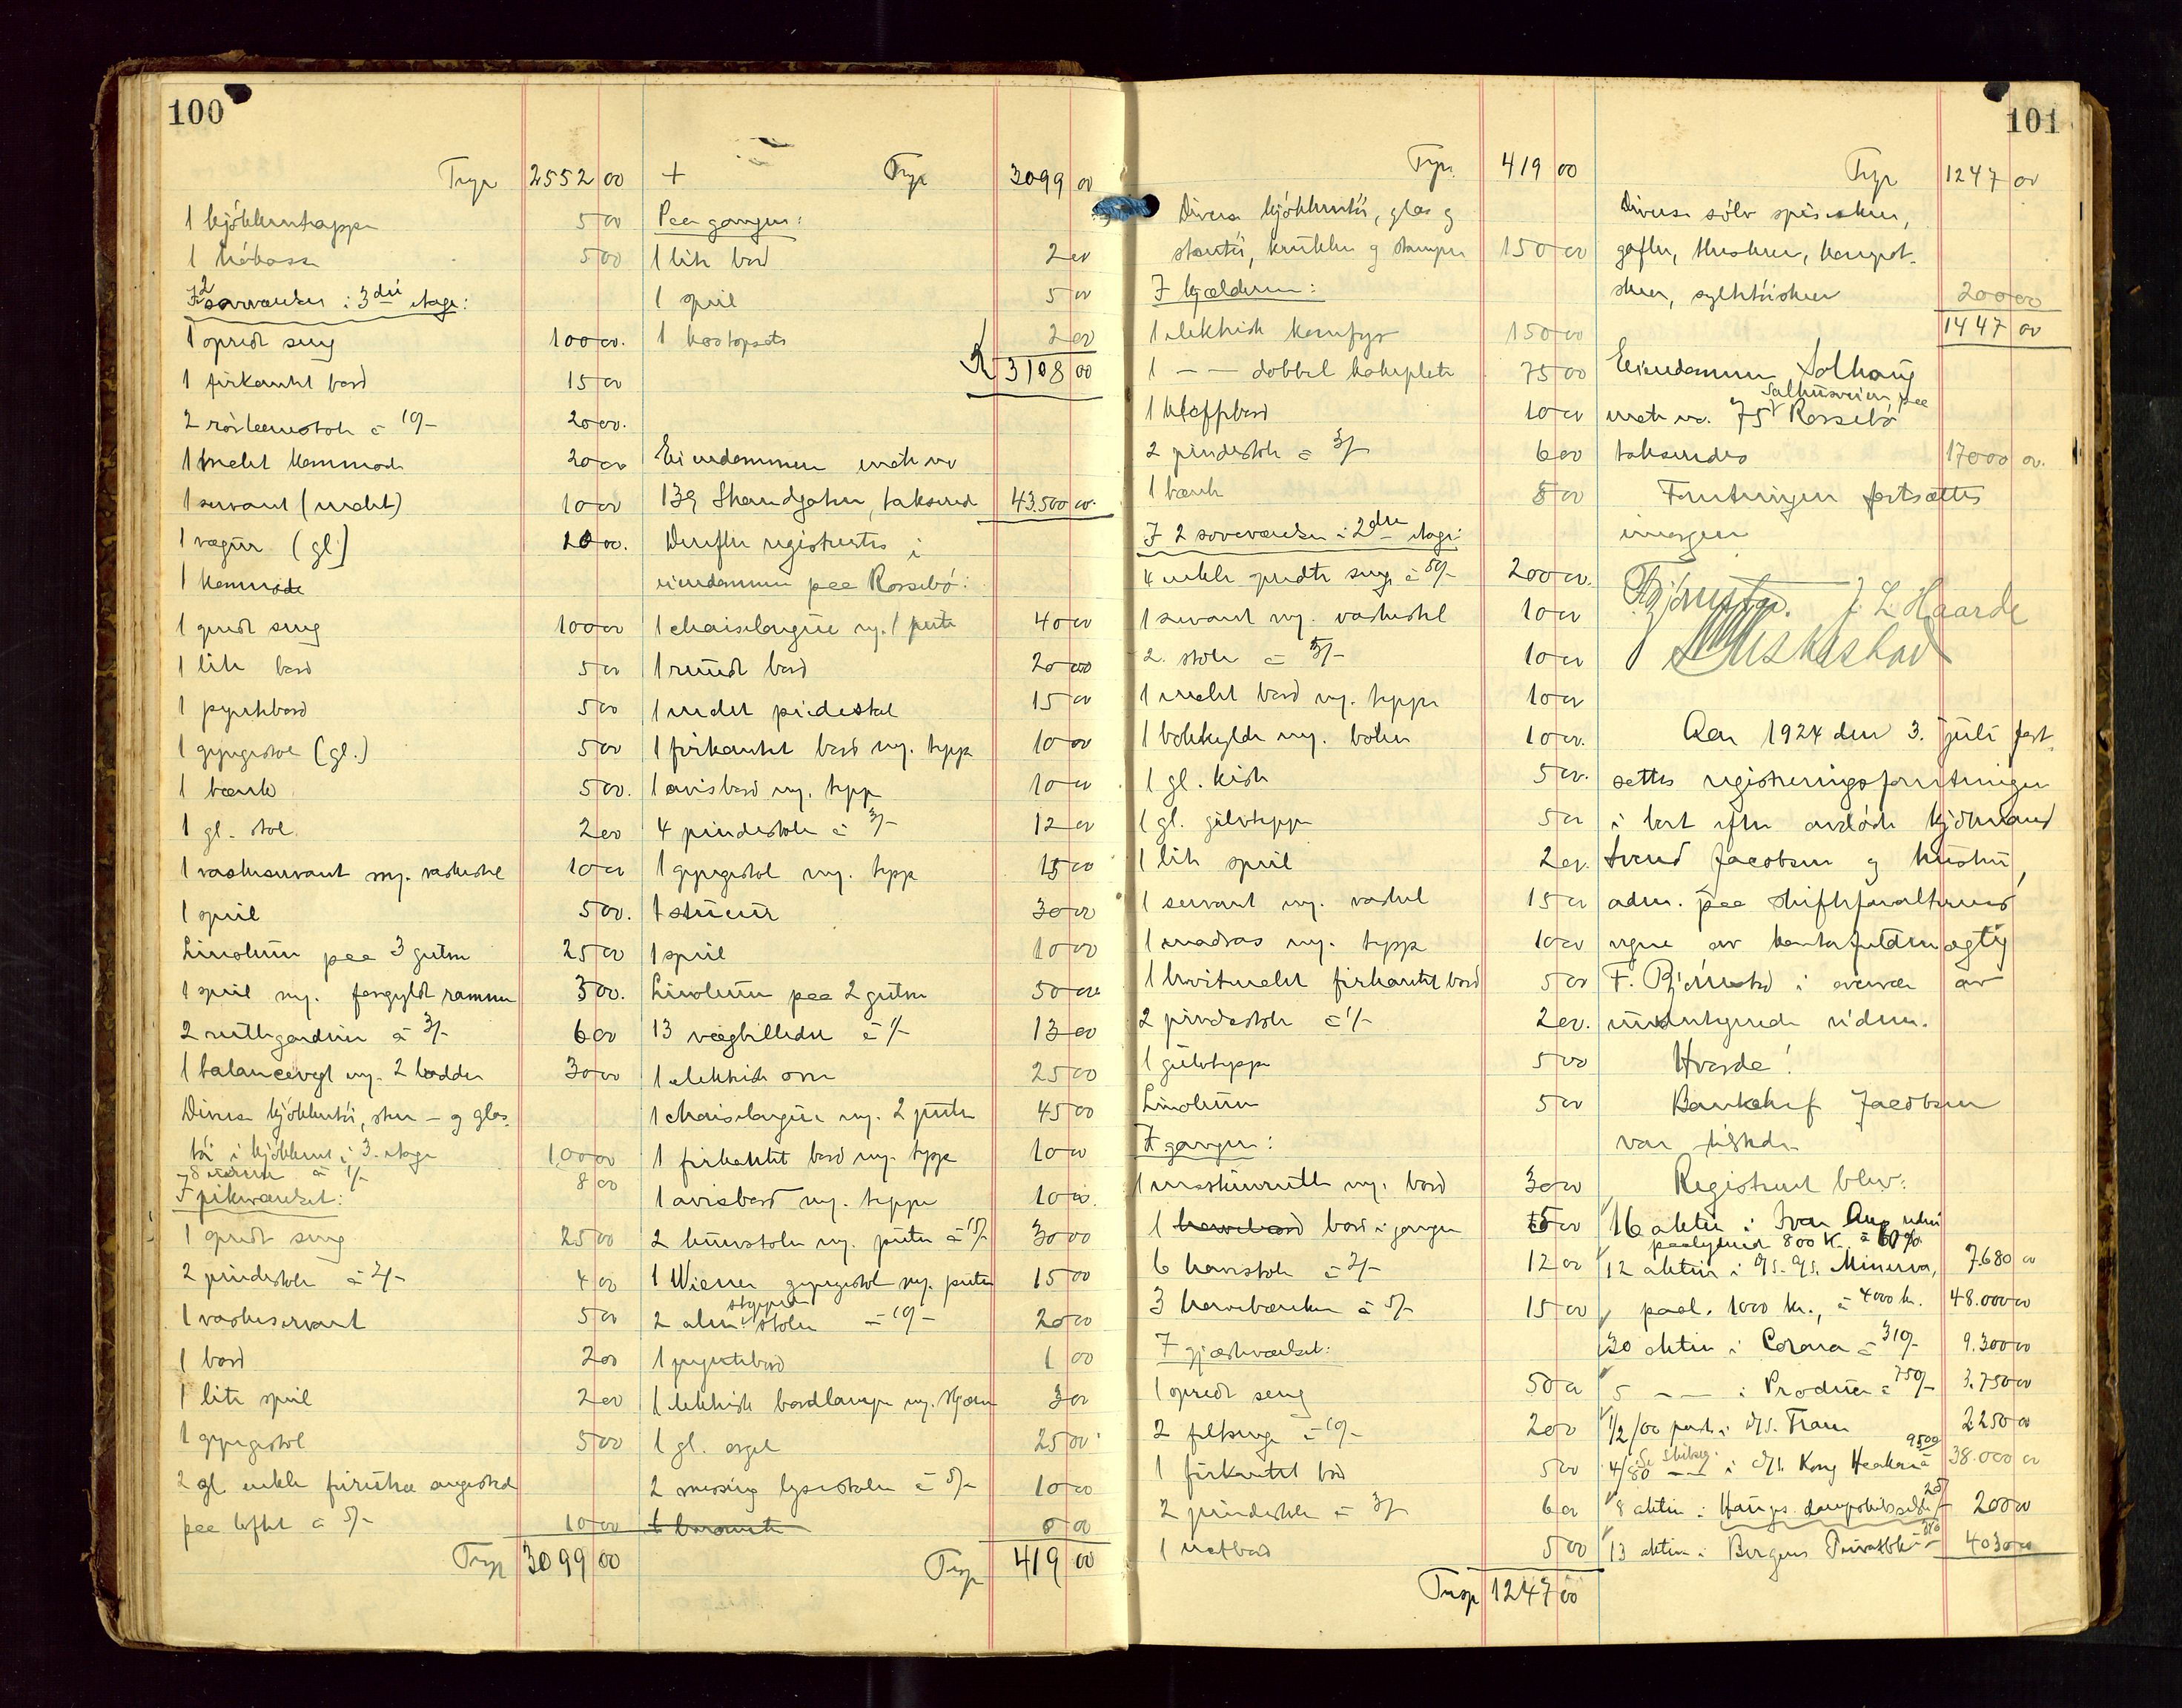 100
Trsp 2552 00
1 kjökkentrappe 5 00
1 trækasse 5 00
I 2 soveværelser i 3die etage:
1 opredt seng 100 00
1 firkantet bord 15 00
2 rörleenstole á 10/- 20 00
1 malet kommode 20 00
1 servant (malet) 10 00
1 vægur (gl.) 10 00
1 kommode
1 opredt seng 100 00
1 lite bord 5 00
1 pyntebord 5 00
1 gyngestol (gl.) 5 00
1 bænk 5 00
1 gl. stol 2 00
1 vaskeservant m/. vaskestel 10 00
1 speil 5 00
Linoleum paa 3 gulve 25 00
1 speil m/. forgyldt ramme 3 00
2 rullegardiner á 3/- 6 00
1 balancevegt m/. 2 lodder 30 00
Diverse kjökkentöi, sten- og glas-
töi i kjökkenet i 3. etage 100 00
á 1/- 8 00
I pikeværelset:
1 opredt seng 25 00
2 pindestole á 2/- 4 00
1 vaskeservant 5 00
1 bord 2 00
1 lite speil 2 00
1 gyngestol 5 00
2 gl. enkle furutræ sengesteder
paa loftet á 5/- 10 00
Trsp 3099 00
+ Trsp 3099 00
Paa gangen:
1 lite bord 2 00
1 speil 5 00
1 kostopsats 2 00
3108 00
Eiendommen matr. no
139 Strandgaten, takseres 43.500 00
Derefter registrertes i
eiendommen paa Rossebö:
1 chaiselongue m/. 1 pute 40 00
1 rundt bord 20 00
1 malet piedestal 15 00
1 firkantet bord m/. teppe 10 00
1 avisbord m/. teppe 10 00
4 pindestole á 3/- 12 00
1 gyngestol m/. teppe 15 00
1 stueur 30 00
1 speil 10 00
Linoleum paa 2 gulve 50 00
13 vægbilleder á 1/- 13 00
1 elektrisk ovn 25 00
1 chaiselongue m/. 2 puter 45 00
1 firkantet bord m/. teppe 10 00
1 avisbord m/. teppe 10 00
2 kurvstoler m/. puter á 15/- 30 00
1 Wiener gyngestol m/. puter 15 00
2 alm. stoppede stoler - 10/- 20 00
1 pyntebord 1 00
1 elektrisk bordlampe m/. skjærm 3 00
1 gl. orgel 25 00
2 messing lysestaker á 5/- 10 00
1 barometer 0 00
Trsp 419 00
Trsp. 419 00
Diverse kjökkentöi, glas og
stentöi, krukker og stamper 150 00
I kjælderen:
1 elektrisk komfyr 150 00
1 -- dobbel kokeplate 75 00
1 klappbord 10 00
2 pindestole á 3/- 6 00
1 bænk 5 00
I 2 soveværelser i 2den etage:
4 enkle opredte senge á 50/- 200 00
1 servant m/. vaskestel 10 00
2 stole á 5/- 10 00
1 malet bord m/. teppe 10 00
1 bokhylde m/. böker 10 00
1 gl. kiste 5 00
1 gl. gulvteppe 5 00
1 lite speil 2 00
1 servant m/. vaskestel 15 00
1 madras m/. teppe 10 00
1 hvitmalet firkantet bord 5 00
2 pindestole á 1/- 2 00
1 gulvteppe 5 00
Linoleum 5 00
I gangen:
1 vaskemaskinrulle m/. bord 30 00
1 havebord bord i gangen 5 00
6 havestole á 2/- 12 00
3 havebænker á 5/- 15 00
I gjesteværelset:
1 opredt seng 50 00
2 feltsenge á 10/- 20 0
1 firkantet bord 5 00
2 pindestole á 3/- 6 00
1 natbord 5 00
Trsp 1247 00
101
Trsp 1247 00
Diverse sölv spiseskeer,
gafler, theskeer, kompot-
skeer, syltetöiskeer 200 00
1447 00
Eiendommen Solhaug
Salhusveien paa
matr. no. 75 Rossebö
takseredes 17000 00
Forretningen fortsættes
imorgen
F. Bjørnstad. J. L. Haarde
Aar 1924 den 3. juli fort-
sattes registreringsforretningen
i bort efter avdöde kjöbmand
Svend Jacobsen og hustru,
adm. paa skifteforvalterens
vegne av kontorfuldmægtig
F. Bjørnstad i overvær av
undertegnede vidner.
Hvorda!
Bankchef Jacobsen
var tilstede.
Registrert blev:
16 aktier i Ivar Aug
paalydende 800 k. á 60% 7.680 00
12 aktier i D/S. A/S. Minerva,
paal. 1000 kr., á 4000 kr. 48.000 00
30 aktier i Corona á 310/- 9.300 00
5 -- i Produce á 750/- 3.750 00
1/2/00 part i D/S. Fram 2250 00
4/80 -- i D/S. Kong Haakon á 9500 38.000 00
8 aktier i Hauges. dampskibsselsk. á 25/- 200 00
13 aktier i Bergens Privatbk á 310 4030 00